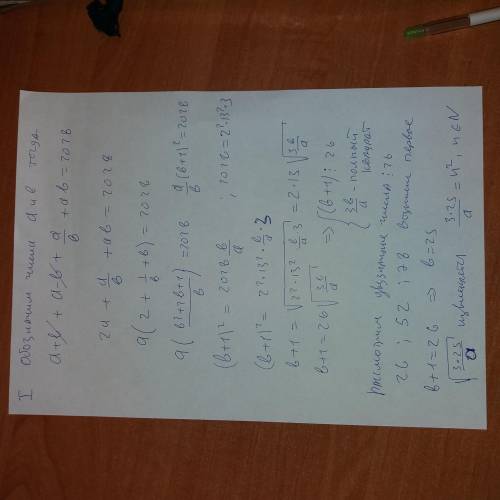 I Обозначим числа a и b тогда
a+b+a-b+a/b+ab=2028
2a+a/b+ab=2028
a(2+1/b+b)=2028
a((b²+2b+1)/b)=2028 a/b(b+1)²=2028
(b+1)²=2028 b/a ; 2028=2²·13²·3
(b+1)²=2²·13²·b/a·3
b+1=√(2²·13² b/a·3)=2·13√(3b/a)
b+1=26√(3b/a) ⇒ {(b+1)⋮26
3b/a - полный квадрат
Рассмотрим указанные числа ⋮26
26; 52; 78 возьмем первое
b+1=26 ⇒ b=25
√(3·25/a) извлекается 3·25/a=n², n∈N